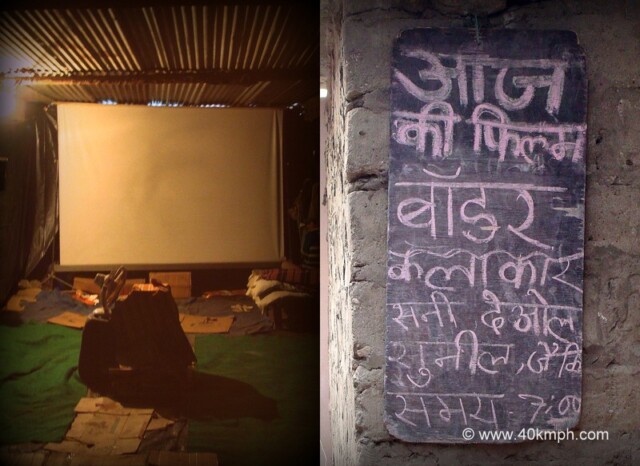 आज
की फिल्म
बॉडर
कलाकार
सनी देओल
सुनील, जैकि
समय - 7:00
© www.40kmph.com